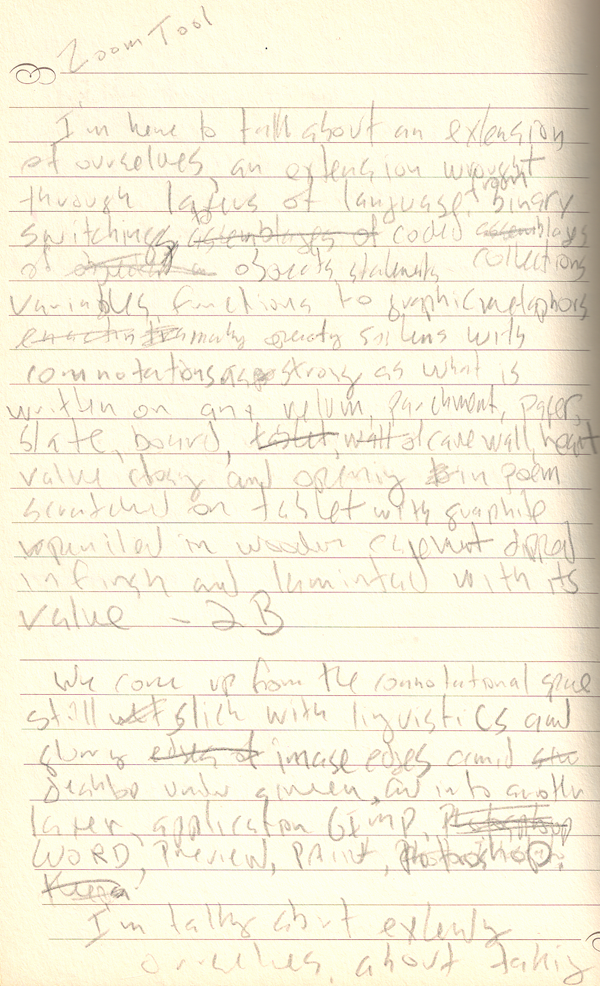 Zoom Tool
I'm here to talk about an extension
of ourselves, an extension wrought
through layers of language, from binary
switching, to assemblages of coded assemblages
of objects, statements collections
variables, functions to graphic metaphors
enacting operating systems with
connotations as strong as what is
written on any velum, parchment, paper,
slate, board, tablet, wall cave wall, heart
value closing and opening in poem
scratched on tablet with graphite
in wooden dipped
in finish and laminted with its
value - 2B
We come up from the connotational space
still wet slick with linguistics and
edges of image edges amid
Desktop under given, and into another
layer, application GIMP, Photoshop
WORD, Preview, PAINT, Photoshop.
I'm talking about extending
ourselves, about taking